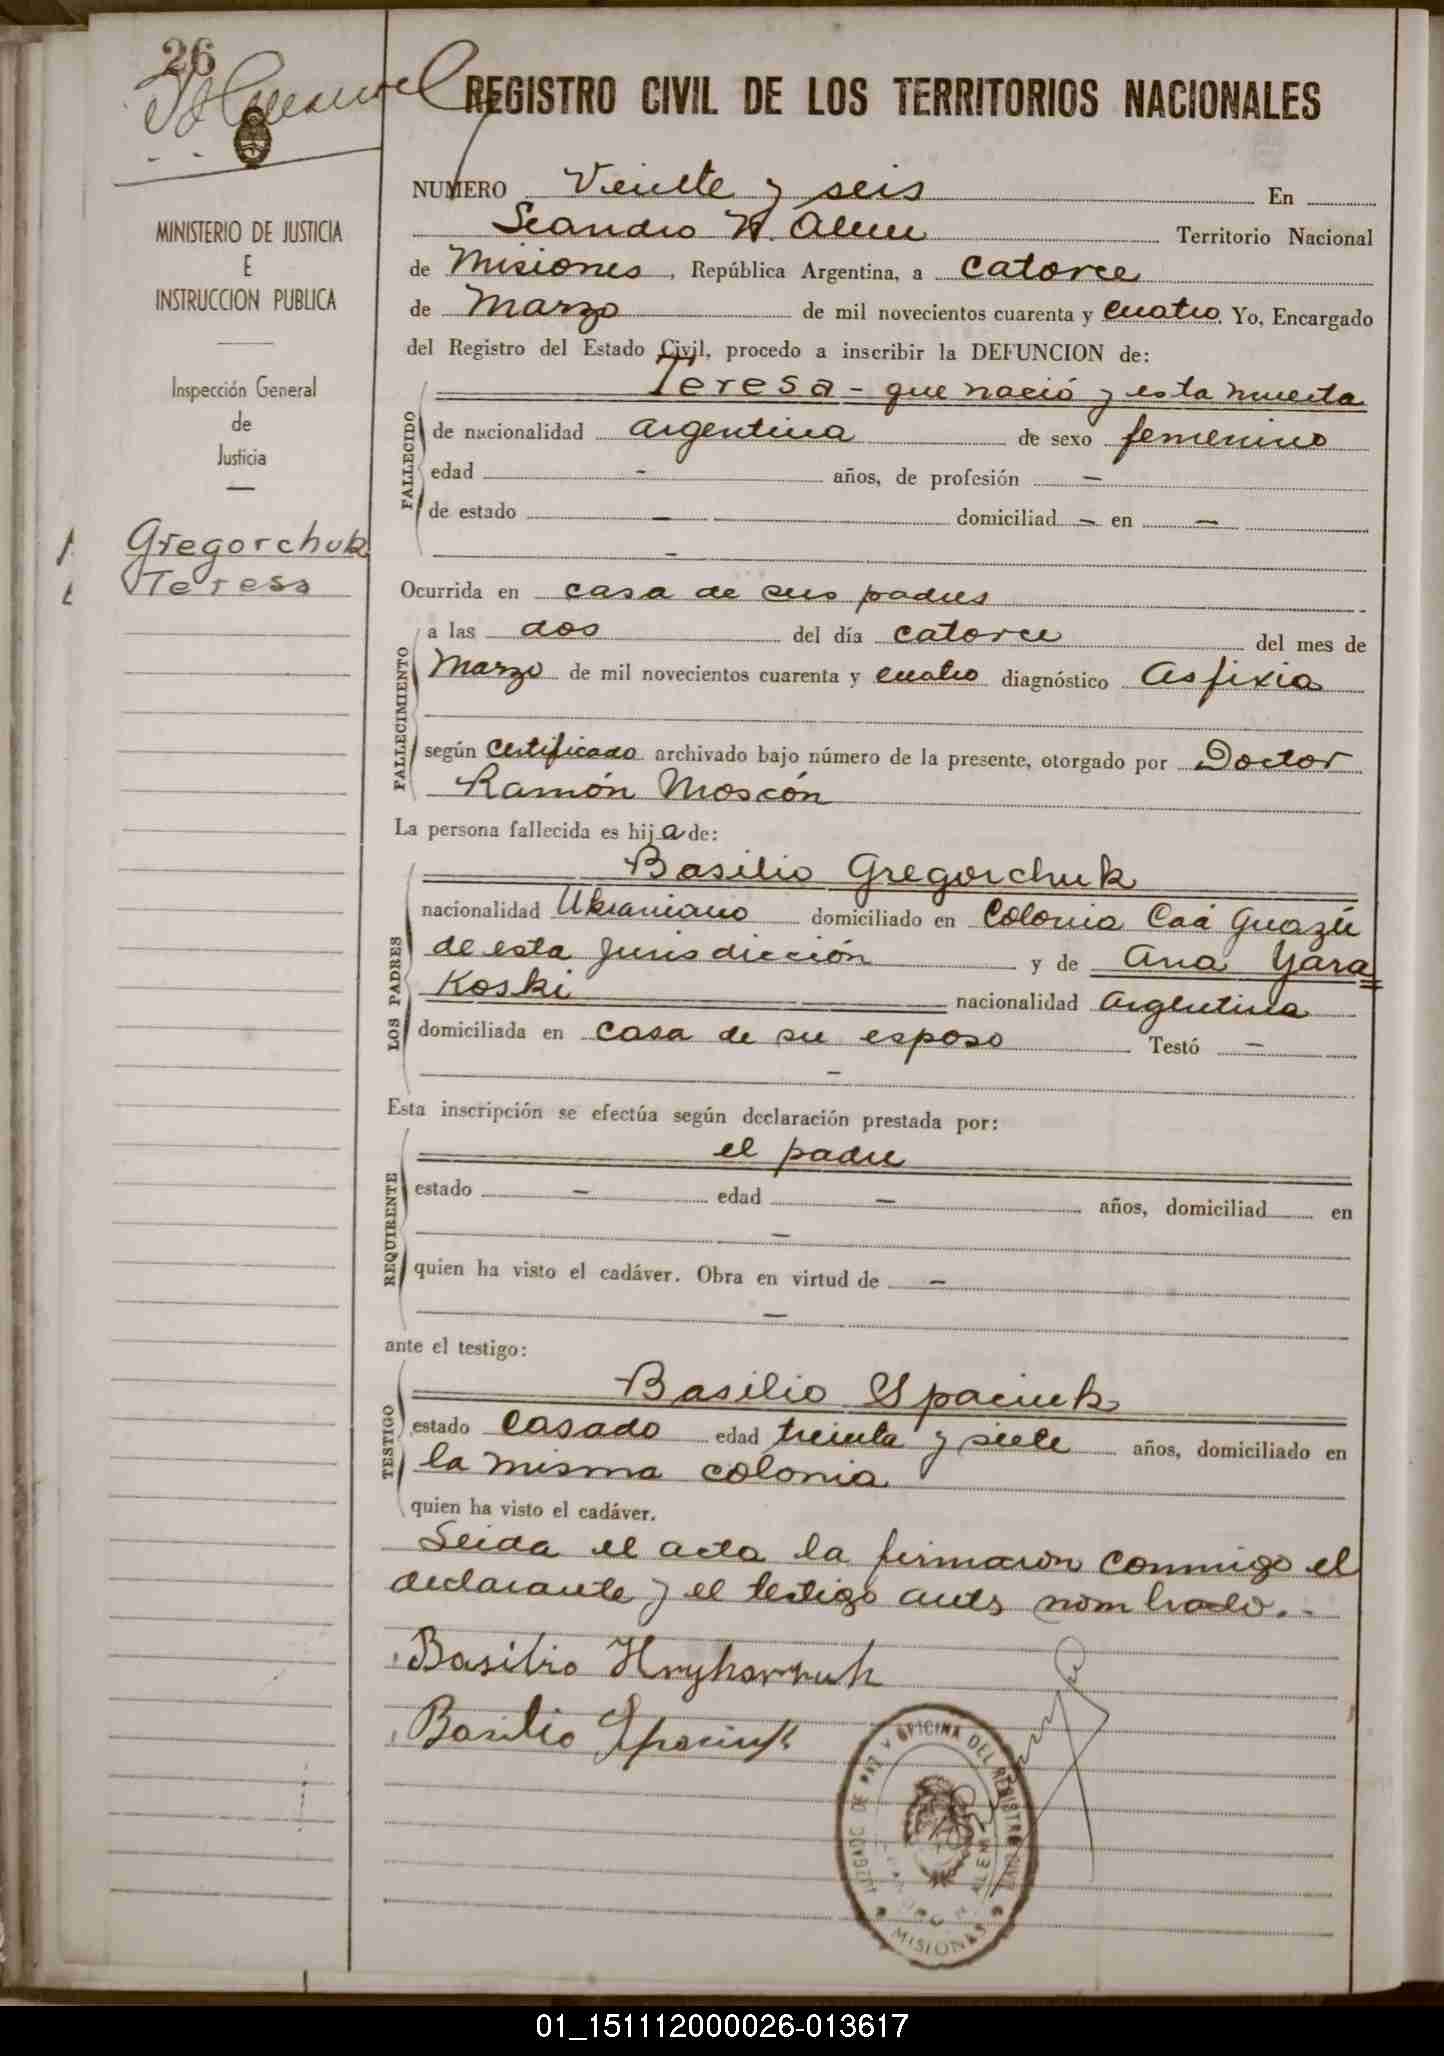 26
REGISTRO CIVIL DE LOS TERRITORIOS NACIONALES
MINISTERIO DE JUSTICIA
E
INSTRUCCION PUBLICA
Inspección General
de
Justicia
Gregorchuk
Teresa
NUMERO Veinte y seis En
Leandro N. Alem Territorio Nacional
de Misiones, República Argentina, a catorce
de Marzo de mil novecientos cuarenta y cuatro. Yo, Encargado
del Registro del Estado Civil, procedo a inscribir la DEFUNCION de:
Teresa - que nació y esta muerta
FALLECIDO
de nacionalidad argentina de sexo femenino
edad - años, de profesión -
de estado - domiciliad - en -
-
Ocurrida en casa de sus padres
FALLECIMIENTO
a las dos del día catorce del mes de
Marzo de mil novecientos cuarenta y cuatro diagnóstico Asfixia
según certificado archivado bajo número de la presente, otorgado por Doctor
Ramón Moscón
La persona fallecida es hija de:
Basilio Gregorchuk
LOS PADRES
nacionalidad Ukraniano domiciliado en Colonia Caá Guazú
de esta Jurisdicción y de Ana Yara
Koski nacionalidad argentina
domiciliada en casa de su esposo Testó -
-
Esta inscripción se efectúa según declaración prestada por:
el padre
REQUIRENTE
estado - edad - años, domiciliad en
-
quien ha visto el cadáver. Obra en virtud de -
-
ante el testigo:
Basilio Spaciuk
TESTIGO
estado casado edad treinta y siete años, domiciliado en
la misma colonia
quien ha visto el cadáver.
Leida el acta la firmaron conmigo el
declarante y el testigo antes nombrado.-
Basilio Hryhorczuk
Basilio Spaciuk
JUZGADO DE PAZ Y OFICINA DEL REGISTRO CIVIL
LEANDRO N. ALEM
MISIONES
01_151112000026-013617